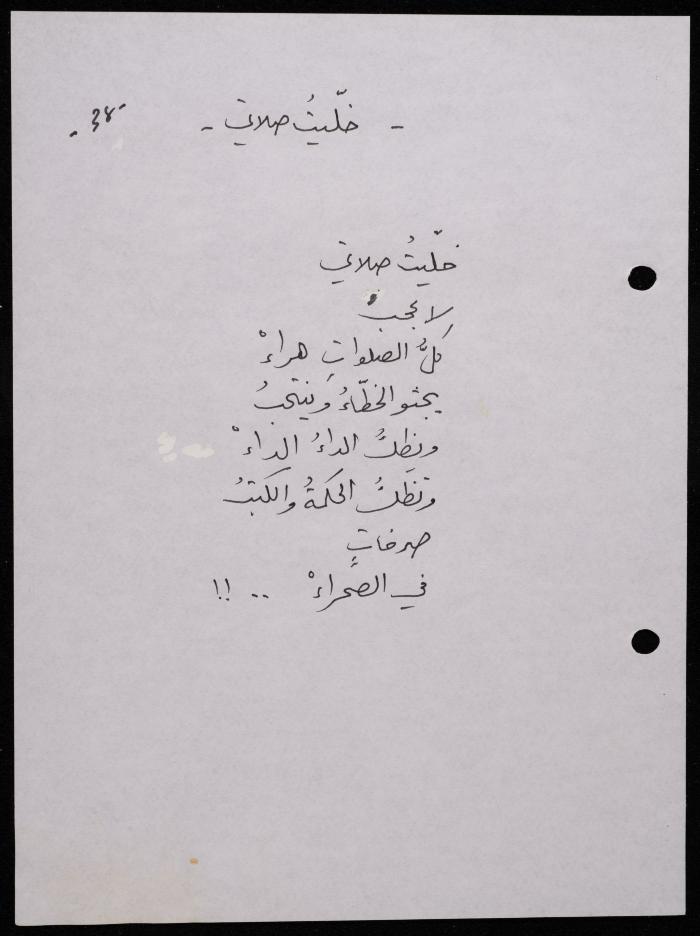 - خلّيتُ صلاتي -
- 38 -
خلّيتُ صلاتي
لا عجبُ
كلُّ الصّلواتِ هراءْ
يجثو الخطّاءُ وينتحبُ
ويظلُّ الداءُ الداءْ
وتظلُّ الحكمةُ والكتبُ
صرخاتٍ
في الصحراءْ .. !!